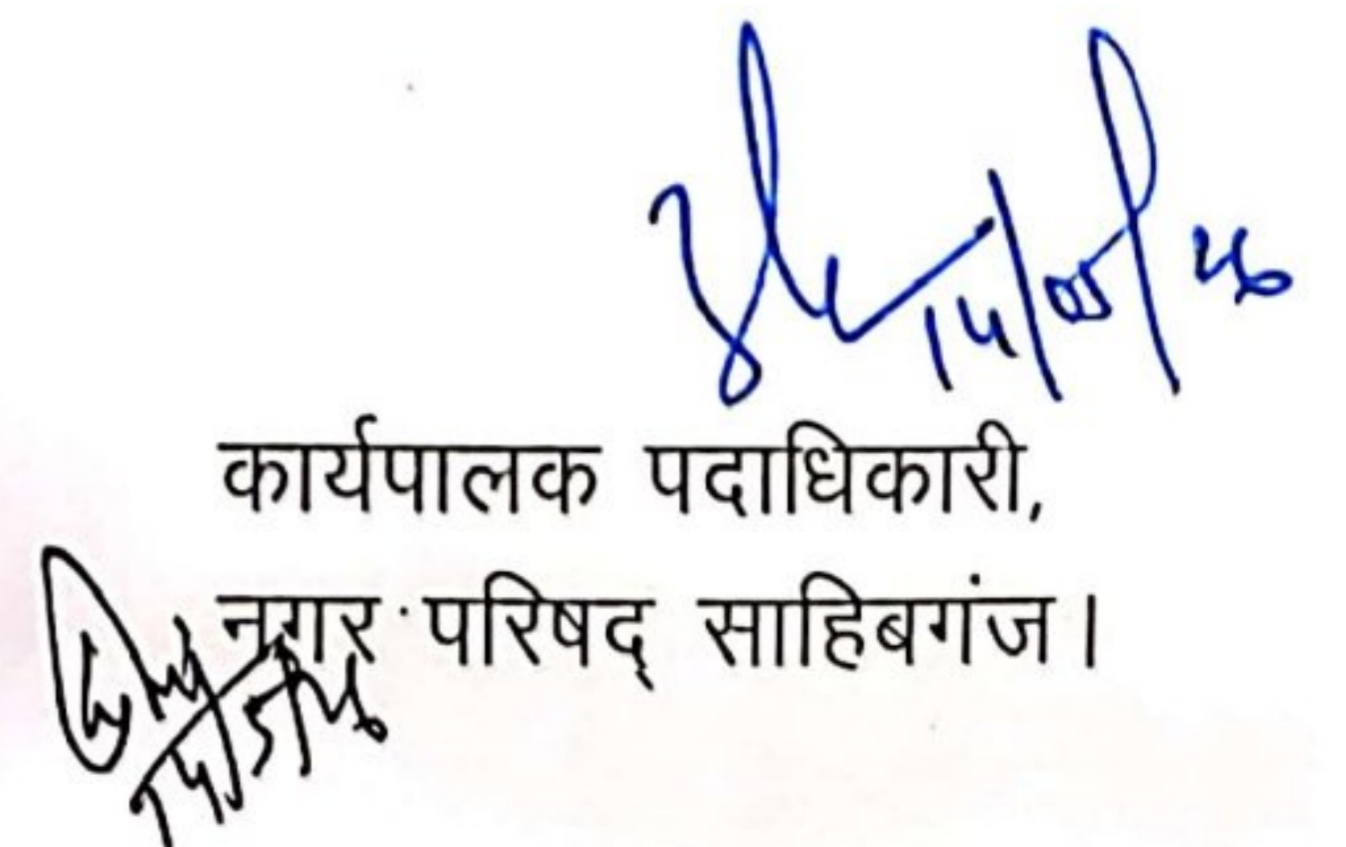 14/05/26
कार्यपालक पदाधिकारी,
नगर परिषद् साहिबगंज।
14/5/26